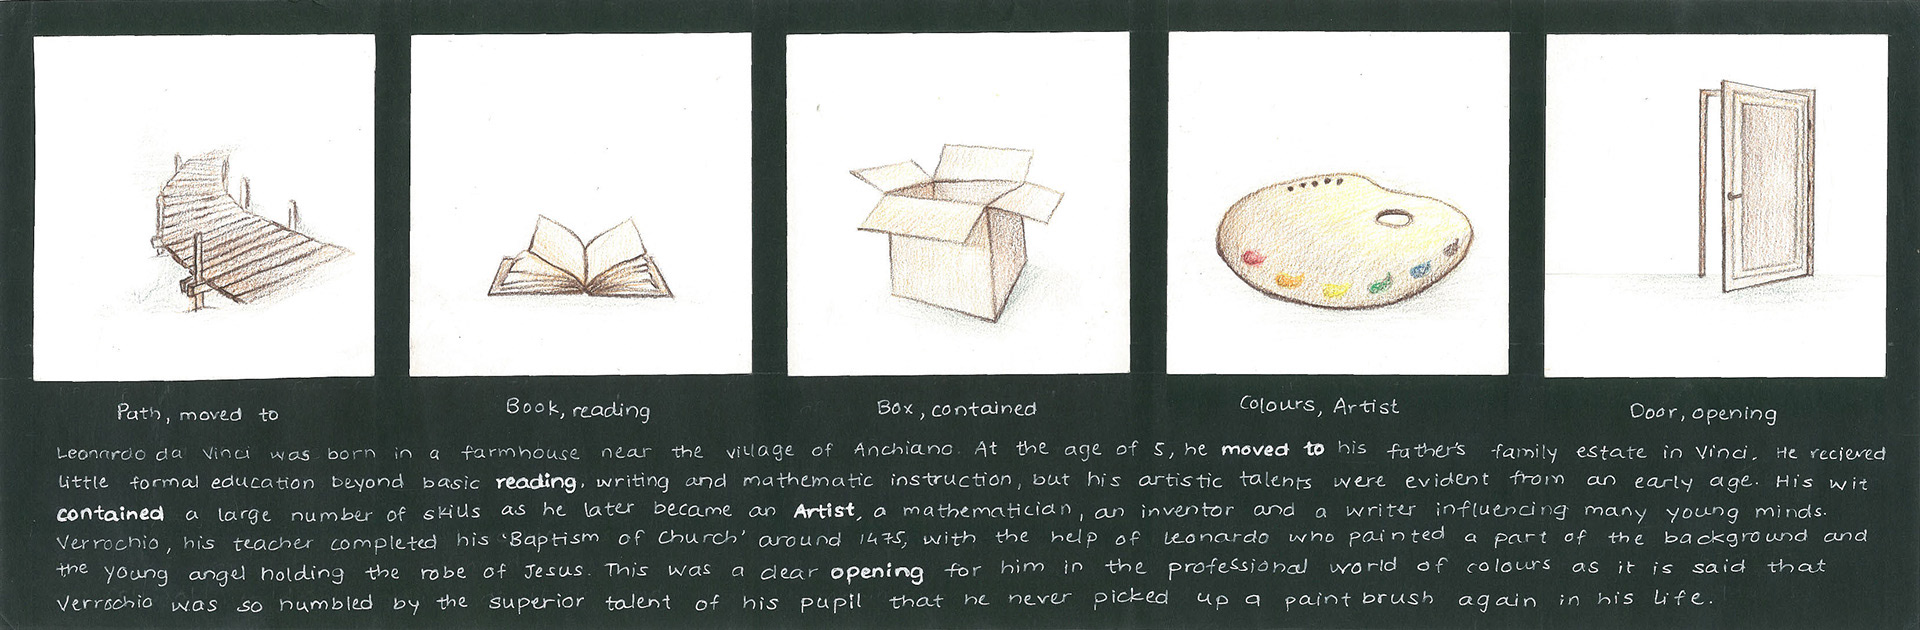 Path, moved to
Book, reading
Box, contained
Colours, Artist
Door, opening
Leonardo da Vinci was born in a farmhouse near the village of Anchiano. At the age of 5, he moved to his father's family estate in Vinci. He recieved
little formal education beyond basic reading, writing and mathematic instruction, but his artistic talents were evident from an early age. His wit
contained a large number of skills as he later became an Artist, a mathematician, an inventor and a writer influencing many young minds.
Verrochio, his teacher completed his 'Baptism of Church' around 1475, with the help of Leonardo who painted a part of the background and
the young angel holding the robe of Jesus. This was a clear opening for him in the professional world of colours as it is said that
Verrochio was so humbled by the superior talent of his pupil that he never picked up a paint brush again in his life.